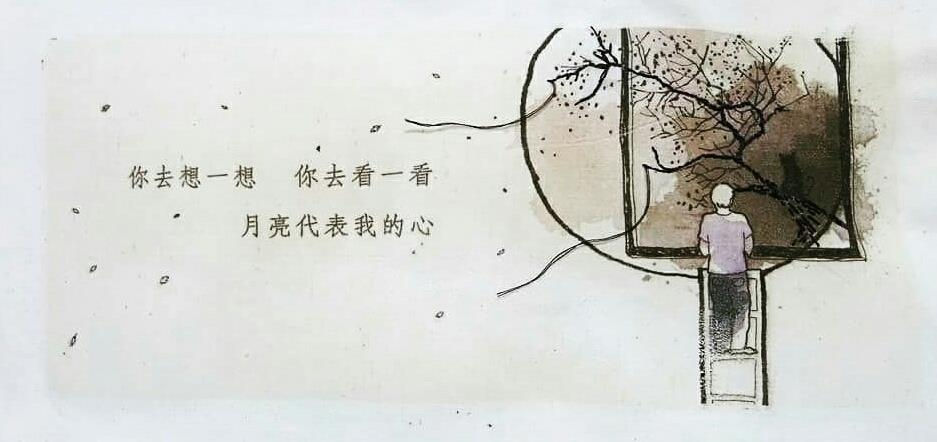 你去想一想　你去看一看
月亮代表我的心